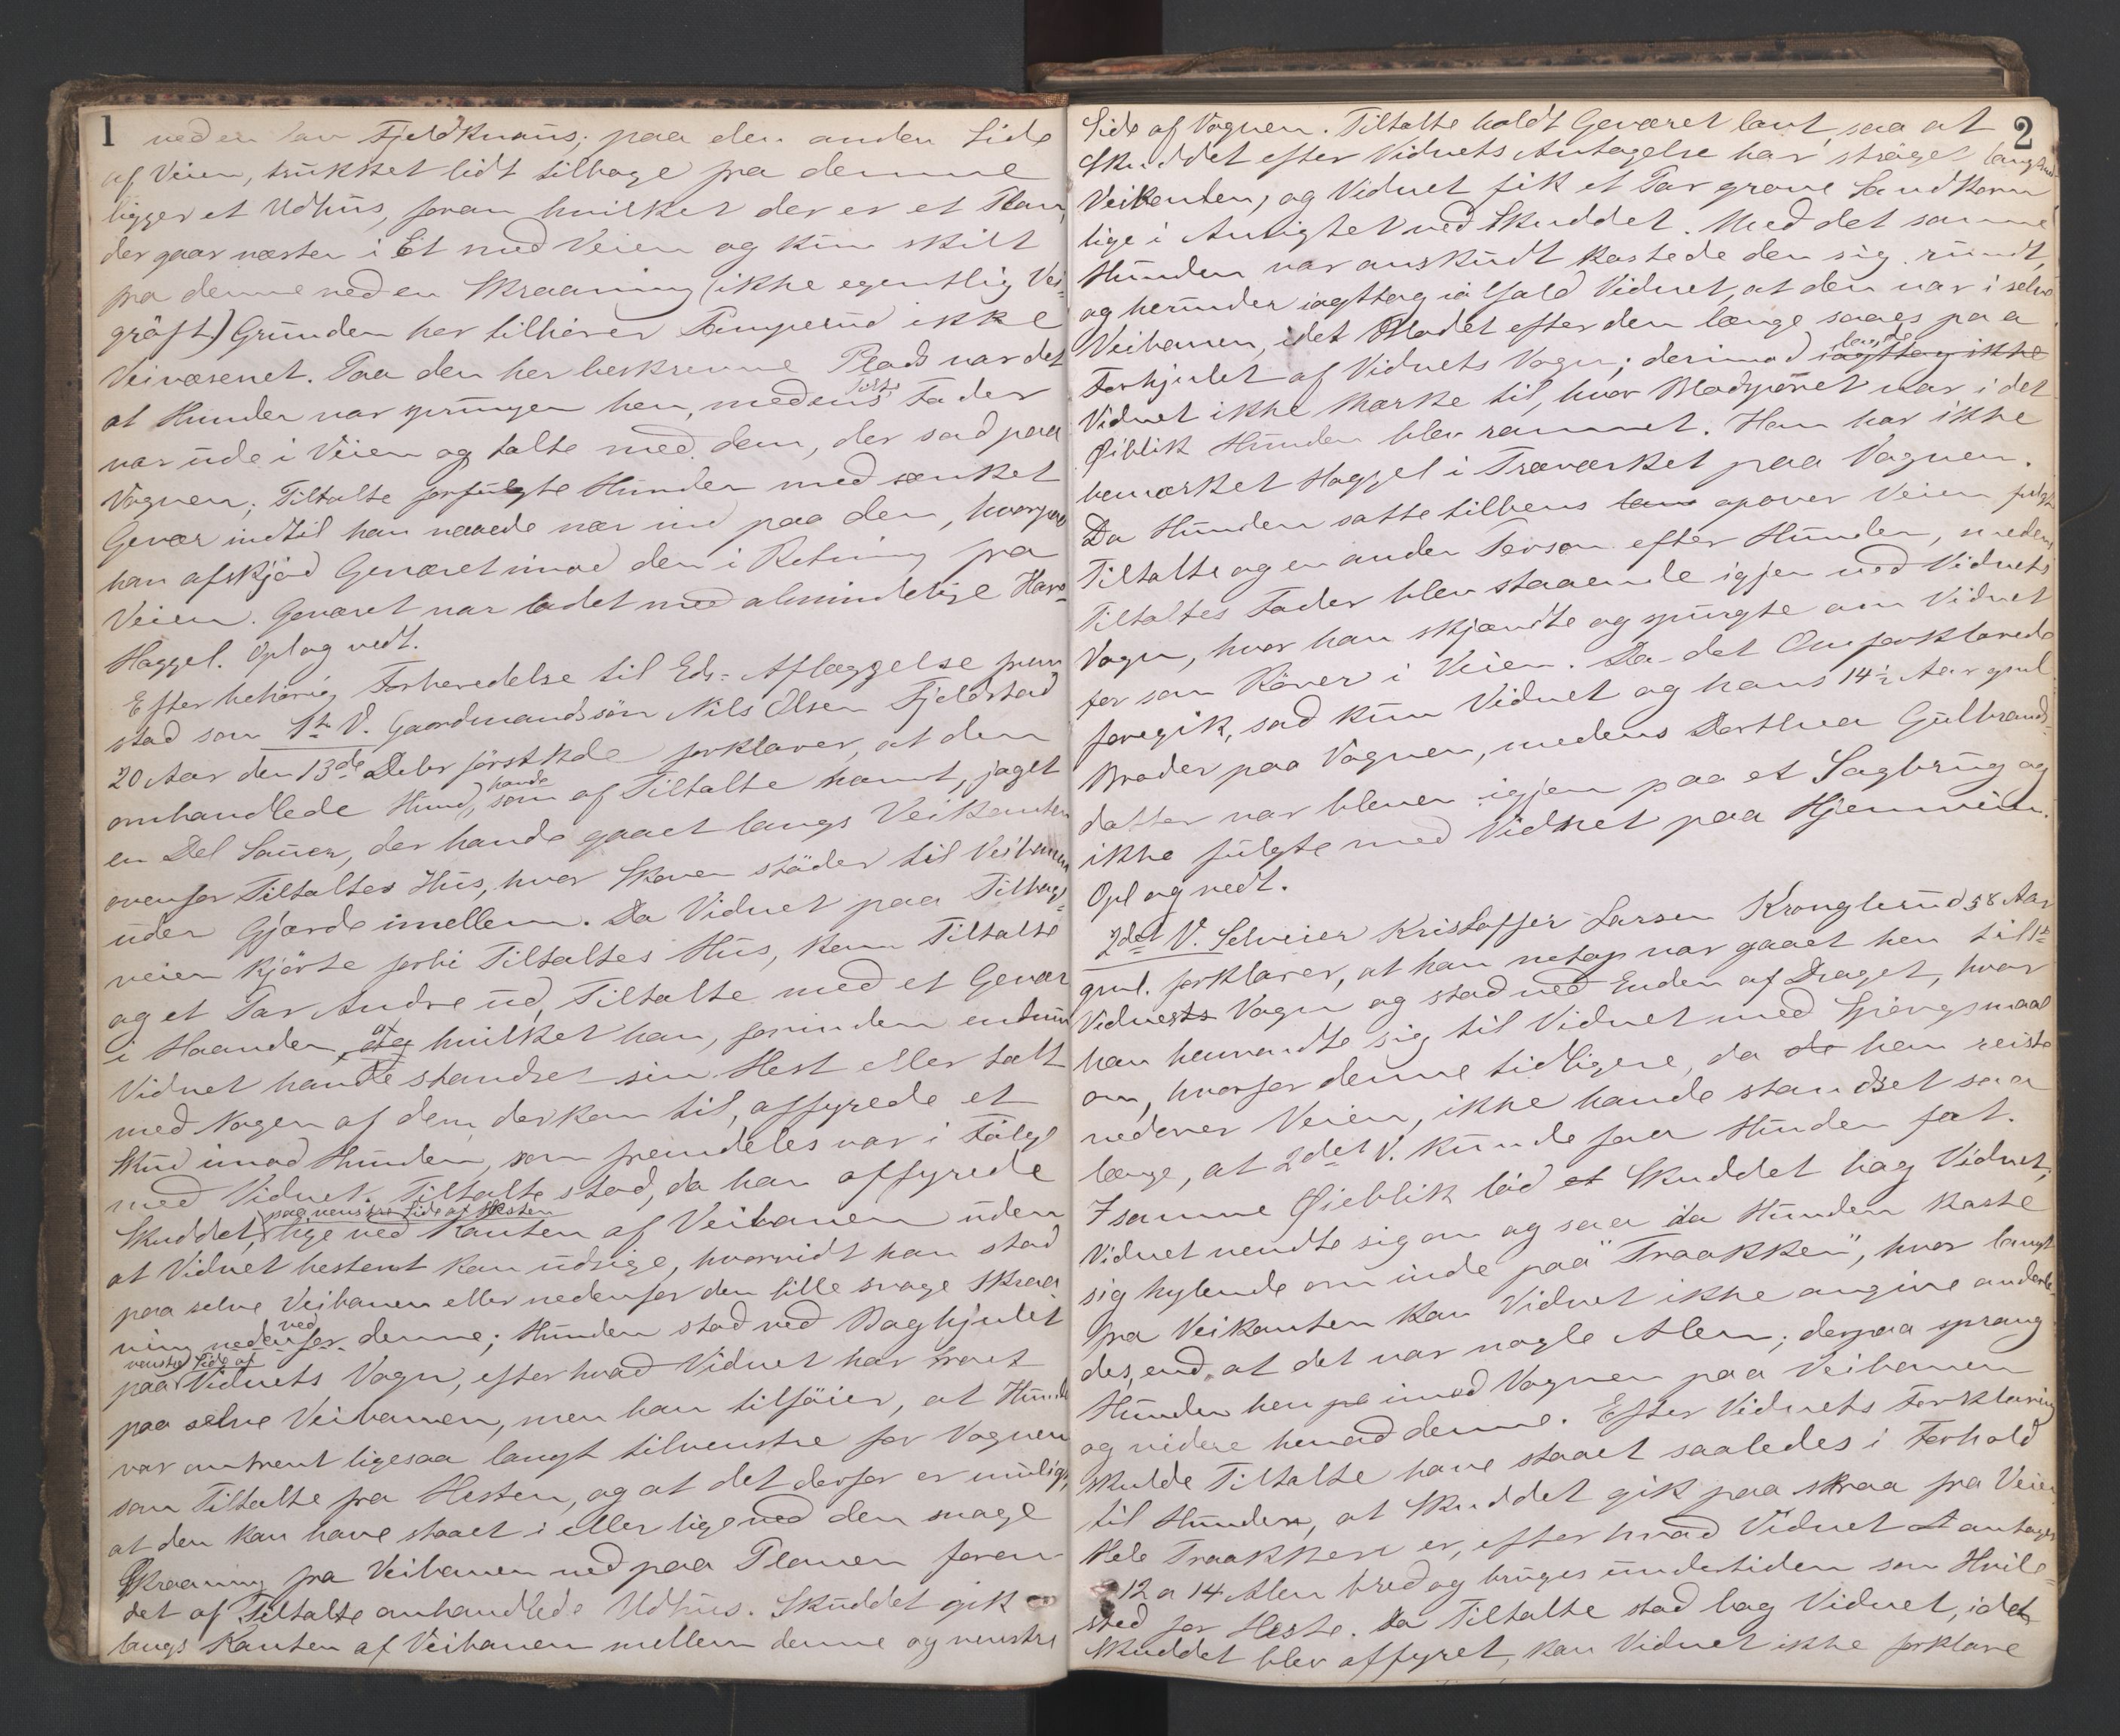 1
ved en lav Fjeldknaus; paa den anden Side
af Veien, trukket lidt tilbage fra denne
ligger et Udhus, foran hvilket der er et Plan,
der gaar næsten i Et med Veien og kun skilt
fra denne ved en Skraaning (ikke egentlig Vei-
grøft) Grunden her tilhører Tampesud ikke
Veivæsenet. Paa den her beskrevne Plads var det
at Hunden var sprungen hen, medens Tilts Fader
var ude i Veien og talte med dem, der sad paa
Vognen; Tiltalte forfulgte Hunden med sænket
Gevær indtil han naaede nær ind paa den, hvorpaa
han afskjød Geværet imod den i Retning fra
Veien. Geværet var ladet med almindelige Hare-
Haggel. Opl og vedt.
Efter behørig Forberedelse til Eds-Aflæggelse frem
stod som 1ste V. Gaardmandssøn Nils Olsen Fjeldstad
20 Aar den 13de Debr førstkde forklarer, at den
omhandlede Hund, som havde af Tiltalte hamt, jaget
en Del Sauer, der havde gaaet langs Veikanten
ovenfor Tiltaltes Hus, hvor Skoven støder til Veibanen
uden Gjærde imellem. Da Vidnet paa Tilbage-
veien kjørte forbi Tiltaltes Hus, kom Tiltalte
og et Par Andre ud, Tiltalte med et Gevær
i Haanden, af hvilket han, forinden endnu
Vidnet havde standset sin Hest eller talt
med Nogen af dem, der kom til, affyrede et
Skud imod Hunden, som fremdeles var i Følge
med Vidnet. Tiltalte stod, da han affyrede
Skuddet, paa venstre Side af Hesten lige ved Kanten af Veibanen uden
at Vidnet bestemt kan udsige, hvorvidt han stod
paa selve Veibanen eller nedenfor den lille svage Skraa
ning nedenfor ved denne; Hunden stod ved Baghjulet
paa venstre Side af Vidnets Vogn, efter hvad Vidnet har troet
paa selve Veibanen, men han tilføier, at Hunden
var omtrent ligesaa langt tilvenstre for Vognen
som Tiltalte fra Hesten, og at det derfor er muligt,
at den kan have staaet i eller lige ved den svage
Skraaning fra Veibanen ned paa Planen foran
det af Tiltalte omhandlede Udhus. Skuddet gik
langs Kanten af Veibanen mellem denne og venstre
2
Side af Vognen. Tiltalte holdt Geværet lavt, saa at
Skuddet efter Vidnets Antagelse har strøget langsmed
Veikanten, og Vidnet fik et Par grove Sandkorn
lige i Ansigtet ved Skuddet. Med det samme
Hunden var anskudt kastede den sig rundt,
og herunder iagttog ialfald Vidnet, at den var i selve
Veibanen, idet Blodet efter den længe saaes paa
Forhjulet af Vidnets Vogn; derimod iagttog ikke lagde
Vidnet ikke Mærke til, hvor Blodsporet var i det
Øiblik Hunden blev rammet. Han har ikke
bemærket Haggel i Træværket paa Vognen.
Da Hunden satte tilbens lans opover Veien fulgte
Tiltalte og en anden Person efter Hunden, medens
Tiltaltes Fader blev staaende igjen ved Vidnets
Vogn, hvor han skjændte og spurgte om Vidnet
for som Røver i Veien. Da det Omforklarede
foregik, sad kun Vidnet og hans 14½ Aar gml
Broder paa Vognen, medens Dorthea Gulbrands-
datter var bleven igjen paa et Sagbrug og
ikke fulgte med Vidnet paa Hjemveien.
Opl og vedt.
2det V. Selveier Kristoffer Larsen Kronglerud 58 Aar
gml. forklarer, at han netop var gaaet hen til 1ste
Vidnests Vogn og stod ved Enden af Draget, hvor
han henvendte sig til Vidnet med Spørgsmaal
om, hvorfor denne tidligere, da de han reiste
nedover Veien, ikke havde standset saa
længe, at 2det V. kunde faa Hunden fat.
I samme Øieblik lød et Skuddet bag Vidnet;
Vidnet vendte sig om og saa da Hunden kaste
sig hylende om inde paa "Traakken", hvor langt
fra Veikanten kan Vidnet ikke angive anderle-
des, end at det var nogle Alen; derpaa sprang
Hunden hen pa imod Vognen paa Veibanen
og videre henad denne. Efter Vidnets Forklaring
skulde Tiltalte have staaet saaledes i Forhold
til Hunden, at Skuddet gik paa skraa fra Veien
Hele Traakken er, efter hvad Vidnet antager
12 a 14 Alen bred og bruges undertiden som Hvile-
sted for Heste. Da Tiltalte stod bag Vidnet, idet
Skuddet blev affyret, kan Vidnet ikke forklare